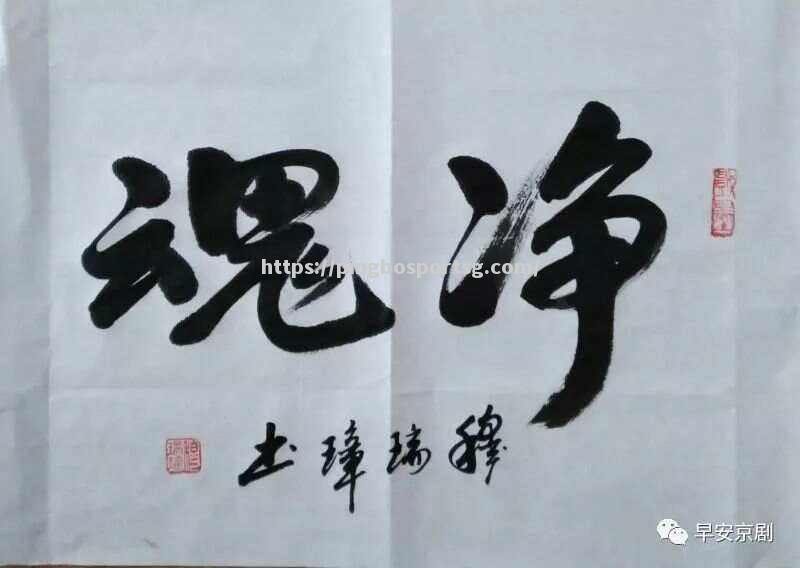 净魂
穆瑞璋书
https://pingbosportsg.com/
早安京剧